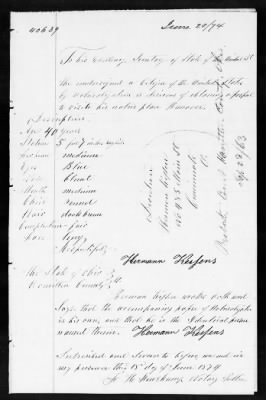 40639
June 20/74
To his Excellency Secretary of State of the United St
The undersigned a Citizen of the United States
by Naturalization is desirous of obtaining a passport
to visit his native place Hannover.
Description
Age 40 years
Stature 5 feet 7 inches English
Forehead medium
Eyes Blue
Nose blunt
Mouth medium
Chin round
Hair dark brown
Complexion fair
Face long
Respectfully
Hermann Hessens
Cincinnati
O.
Probate Court Hamilton Co
Sept 28/63
The State of Ohio
Hamilton County SS.
Herman Hessens makes oath and
says that the accompanying paper of Naturalization
is his own, and that he is the identical person
named therein. Hermann Hessens
Subscribed and Sworn to before me and in
my presence this 18th day of June 1874
Notary Public